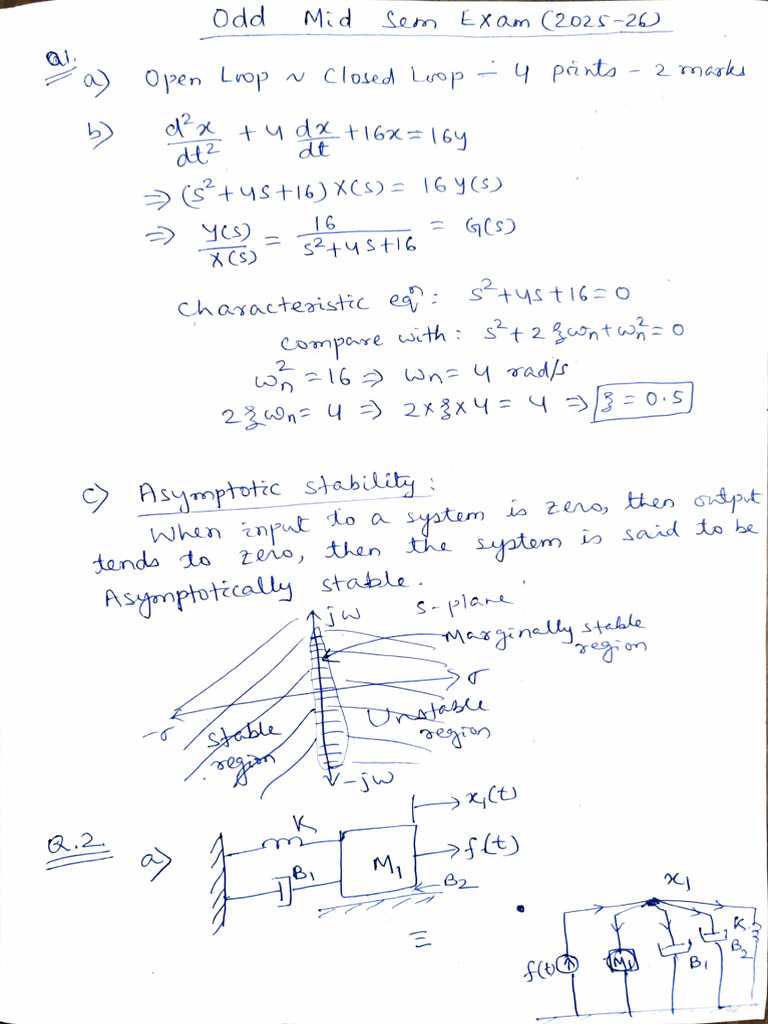 Odd Mid Sem Exam (2025-26)
Q1.
a) Open Loop ~ Closed Loop - 4 points - 2 marks
b) d²x/dt² + 4 dx/dt + 16x = 16y
⇒ (s² + 4s + 16) X(s) = 16 Y(s)
⇒ Y(s)/X(s) = 16/(s² + 4s + 16) = G(s)
Characteristic eqn: s² + 4s + 16 = 0
compare with: s² + 2ξωn + ωn² = 0
ωn² = 16 ⇒ ωn = 4 rad/s
2ξωn = 4 ⇒ 2×ξ×4 = 4 ⇒ ξ = 0.5
c) Asymptotic stability:
When input to a system is zero, then output
tends to zero, then the system is said to be
Asymptotically stable.
jω s-plane
Marginally stable
region
σ
-σ
stable
region
Unstable
region
-jω
Q.2.
a)
K
B1
M1
x1(t)
f(t)
B2
≡
x1
f(t)
M1
B1
B2
K